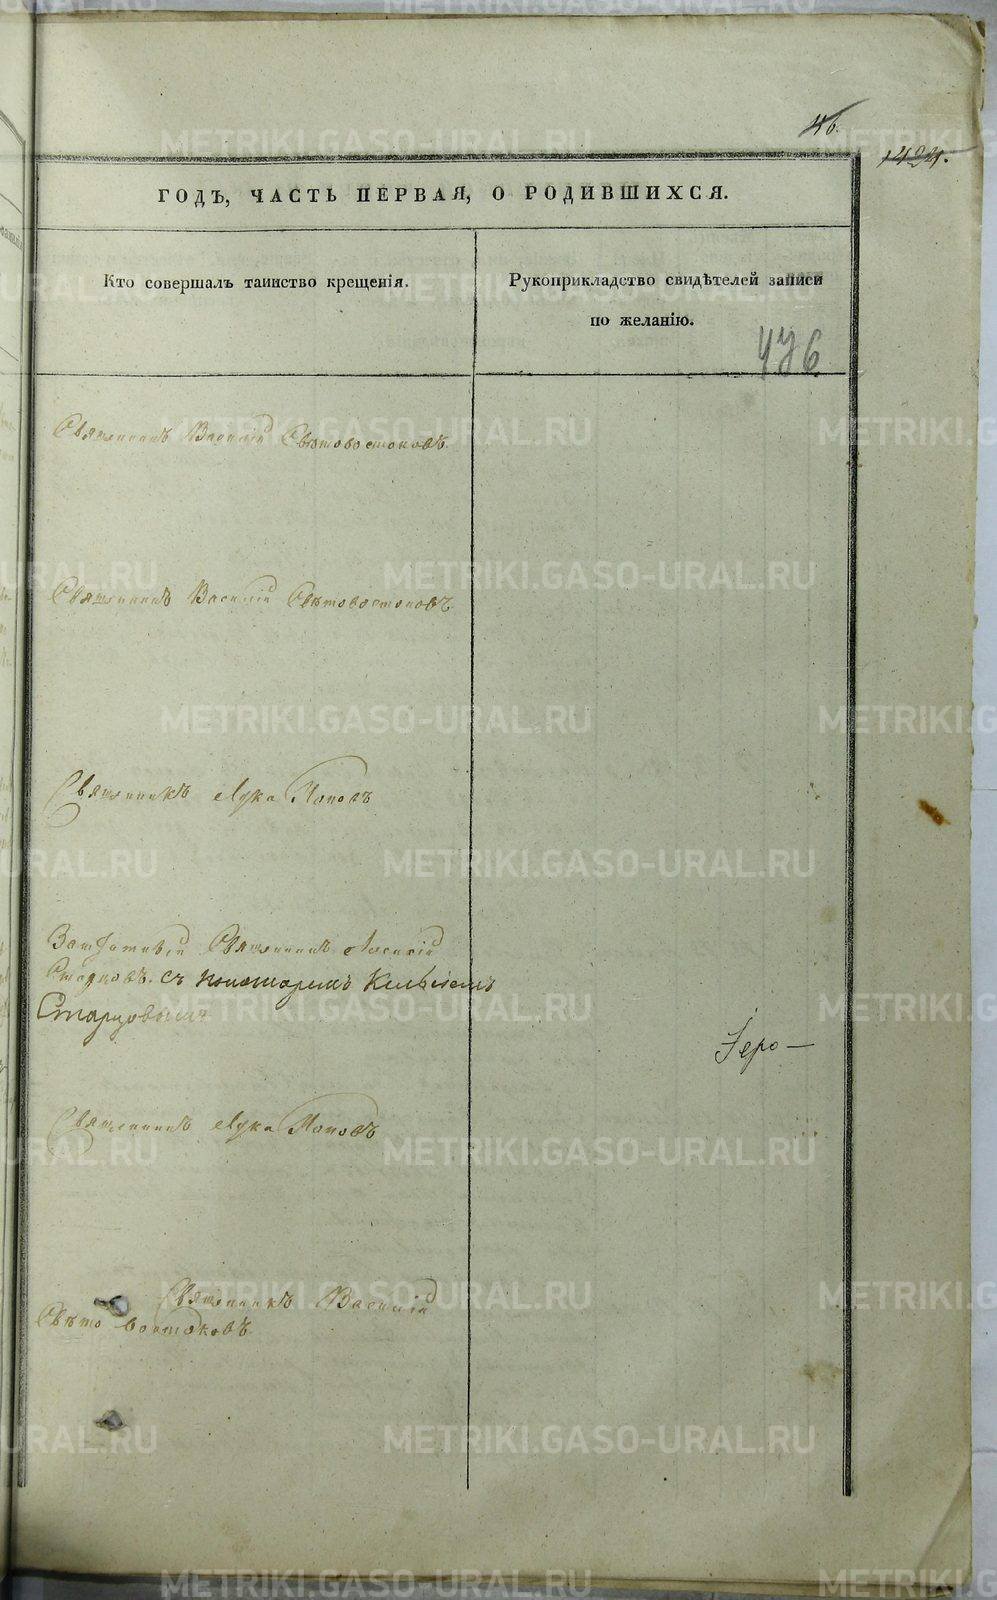 46.
1424.
ГОДЪ, ЧАСТЬ ПЕРВАЯ, О РОДИВШИХСЯ.
Кто совершалъ таинство крещенія.
Рукоприкладство свидѣтелей записи
по желанію.
476
Священникъ Василій Свѣтовостоковъ.
Священникъ Василій Свѣтовостоковъ.
Священникъ Лука Поповъ
Заштатный Священникъ
съ пономаремъ
Старцовымъ
Іеро—
Священникъ Лука Поповъ
Священникъ Василій
Свѣтовостоковъ.
METRIKI.GASO-URAL.RU